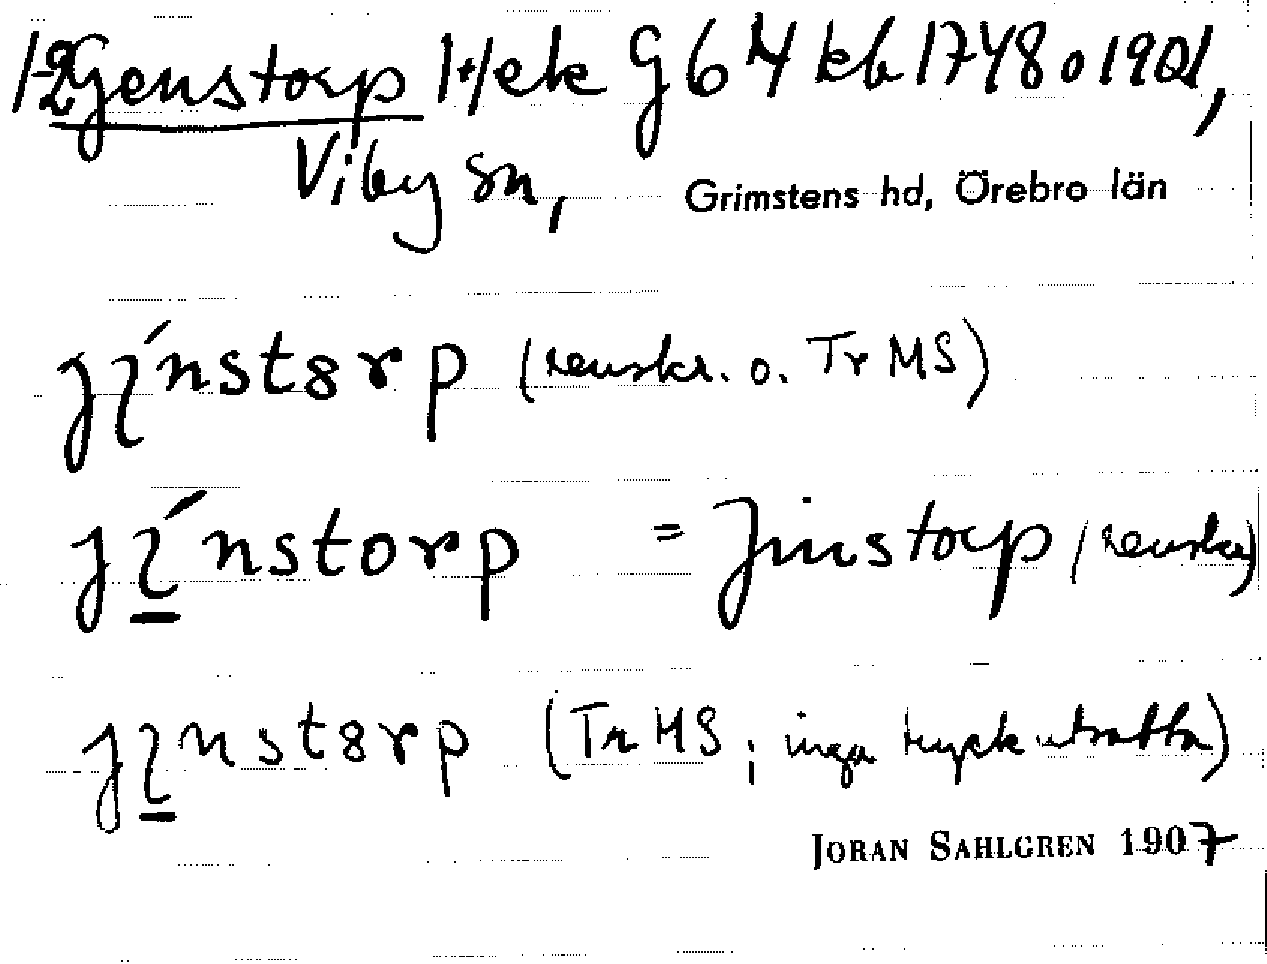 1-2 Genstorp 1+/ek G 6 4 kb 1748 o 1901,
Viby sn, Grimstens hd, Örebro län
jɩ́nst8rp (renskr. o. Tr MS)
jɩ̲́nstorp = Jinstorp (renskr)
jɩ̲nst8rp (Tr MS; inga tryck utsatta)
JORAN SAHLGREN 1907